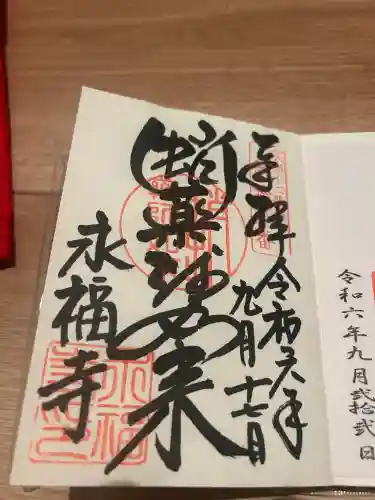 奉拝
令和六年
九月十七日
蛸薬師如来
永福寺
令和六年九月弐拾弐日